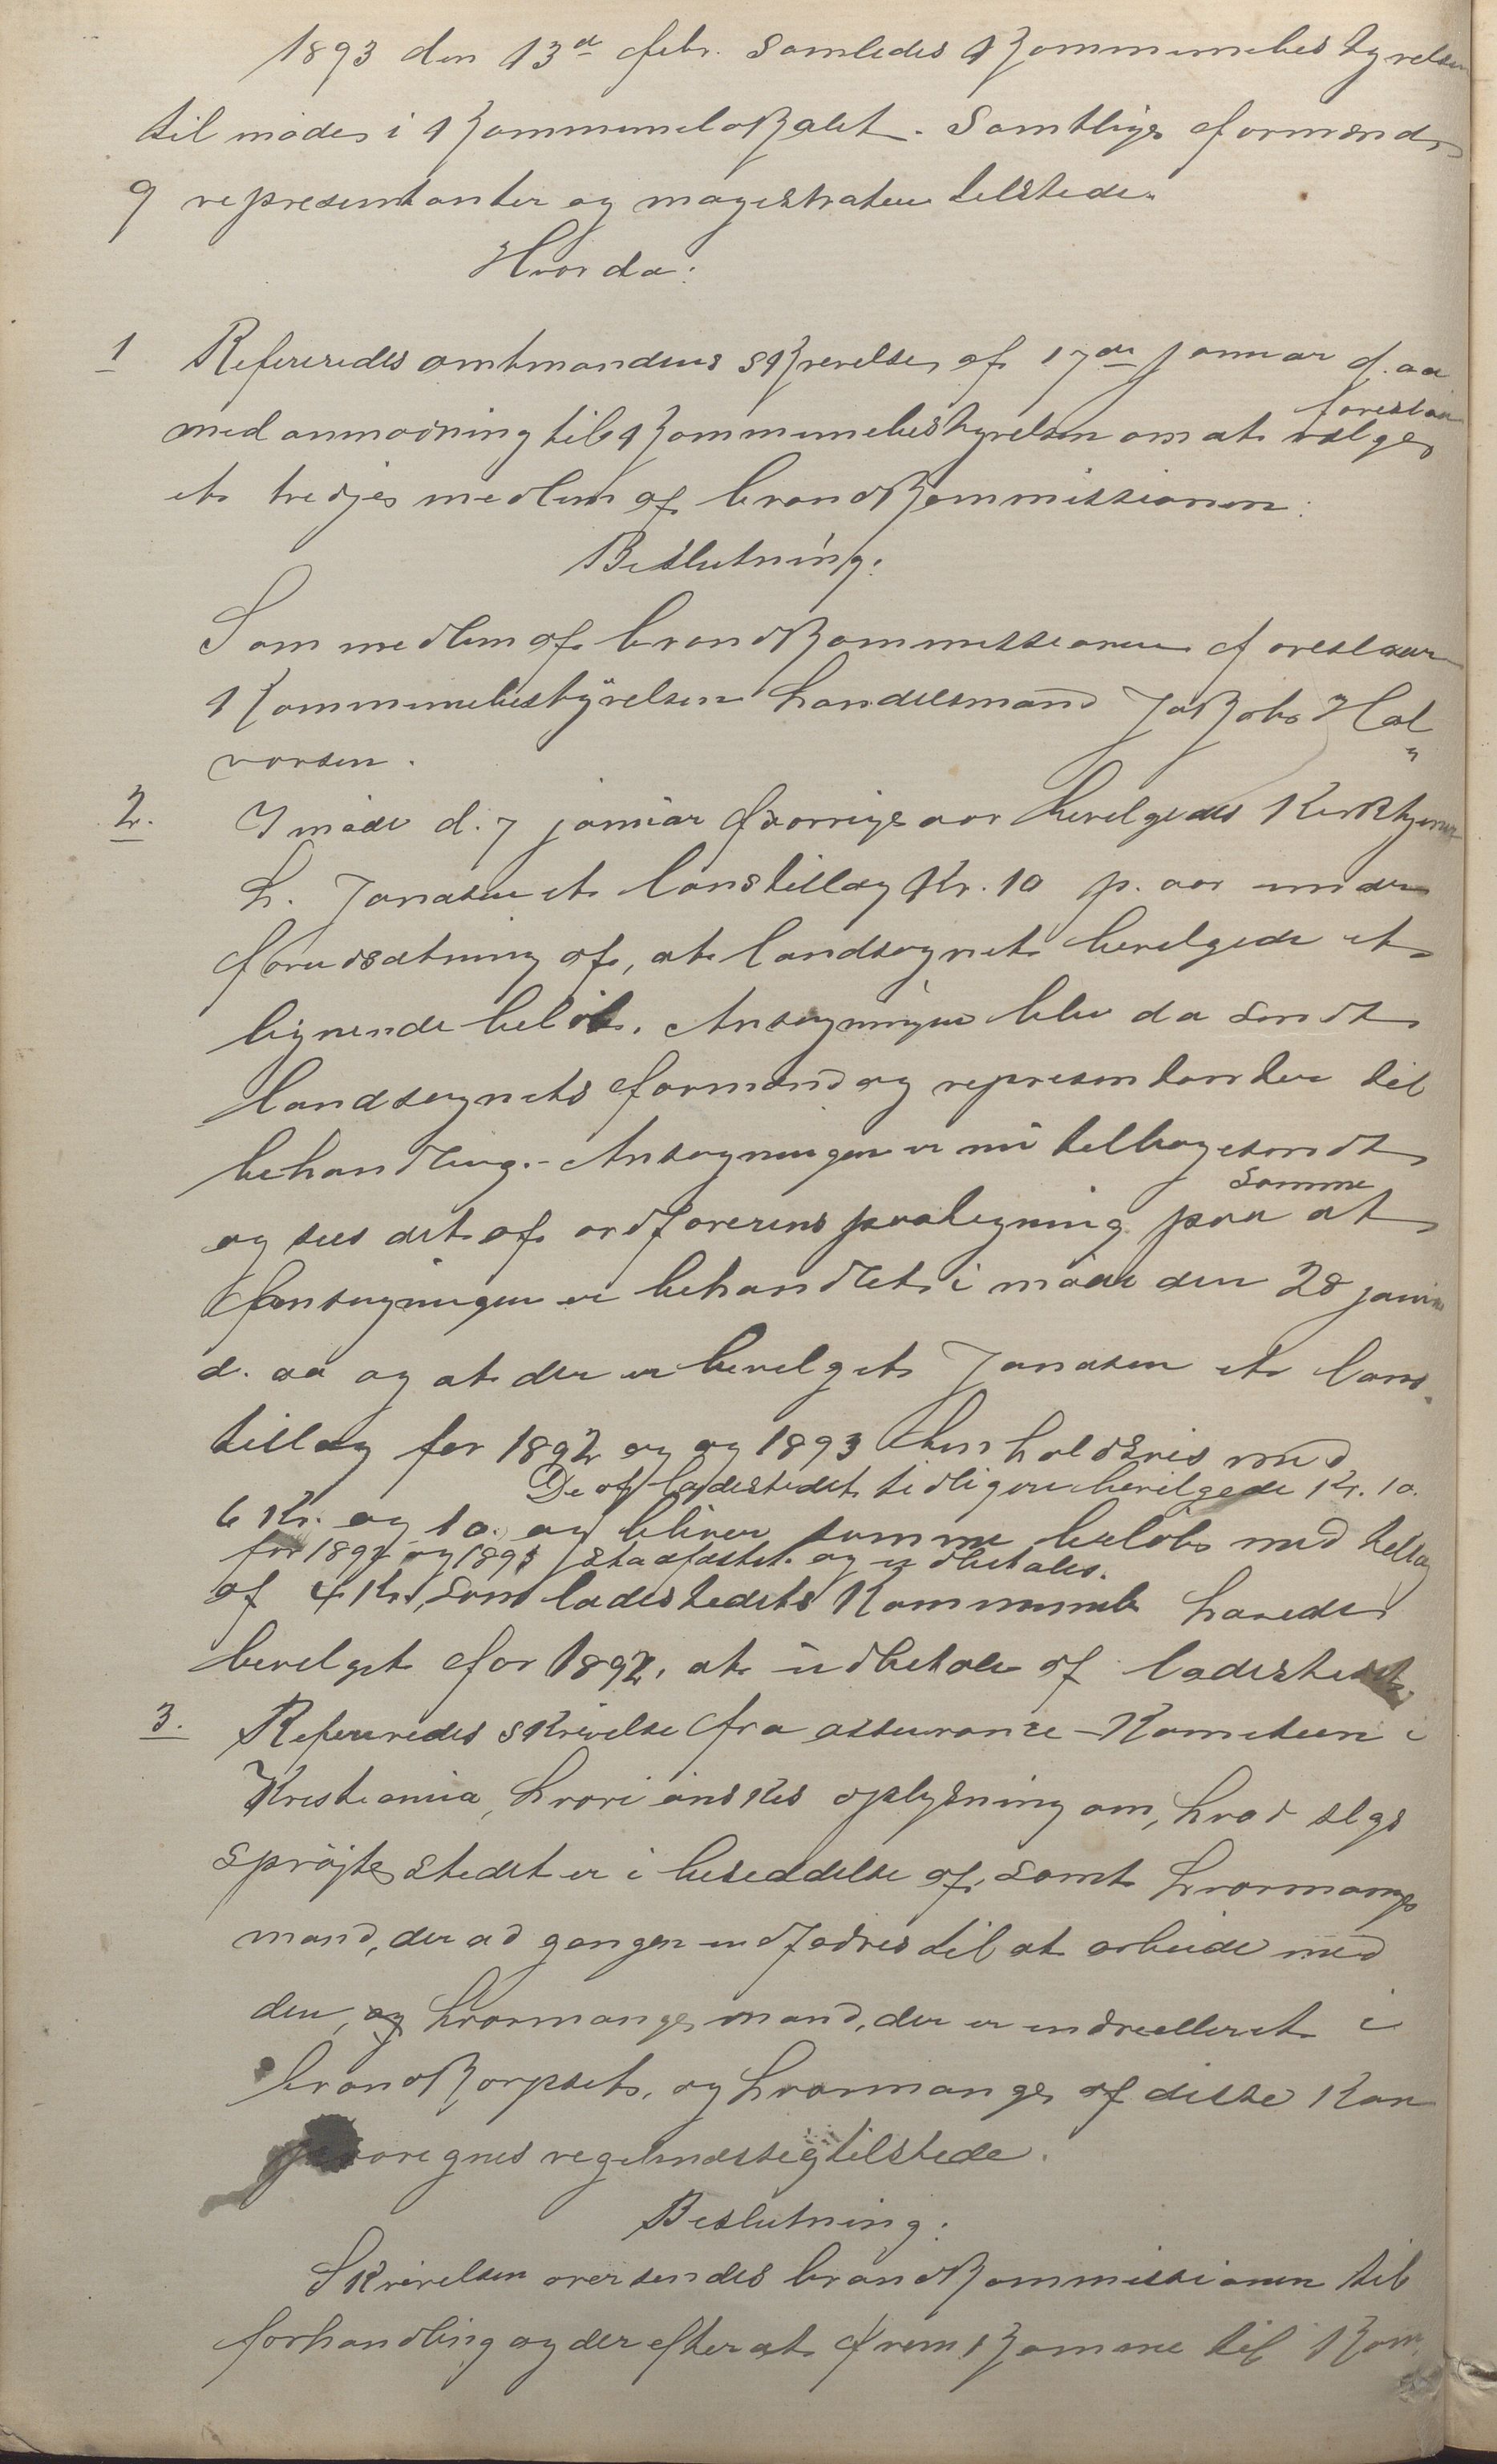 1893 den 13de febr. samledes kommunebestyrelsen
til møde i kommunelokalet. Samtlige formænd,
9 representanter og magistraten tilstede.
Hvor da:
1 Refereredes amtmandens skrivelse af 17de januar d. aa
forestaa
med anmodning til kommunebestyrelsen om at vælge
et tredje medlem af brandkommissionen:
Beslutning:
Som medlem af brandkommissionen foreslaar
kommunebestyrelsen handelsmand Jakob Hal„
vorsen.
2. I møde d. 7 januar forrige aar bevilgedes Kirketjener
L. Jonasen et lønstillæg Kr. 10 p. aar under
forudsætning af, at landsognet bevilgede et
lignende beløb. Ansøgningen blev da sendt
landsognets formænd og representanter til
behandling. - Ansøgningen er nu tilbagesendt
samme
og sees det af ordførerens paategning paa at
ansøgningen er behandlet i møde den 28 januar
d. aa og at der er bevilget Jonasen et løns-
tillæg for 1892 og og 1893 henholdsvis med
De af ladestedet tidligere bevilgede Kr. 10.
6 Kr. og 10. og bliver samme beløb med tillæg
for 1892 og 1893 stadfæstet og udbetales.
af 4 Kr., som ladestedets Kommune havde
bevilget for 1892, at udbetale af ladestedet.
3. Refereredes skrivelse fra assurance-Komiteen i
Kristiania, hvori ønskes oplysning om, hvad slags
sprøjte stedet er i besiddelse af, samt hvormange
mand, der ad gangen udfordres til at arbeide med
den, og hvormange mand, der er indrulleret i
brandkorpset, og hvormange af disse kan
paaregnes regelmæssig tilstede.
Beslutning:
Skrivelsen oversendes brandkommissionen til
forhandling og derefter at fremkomme til kom